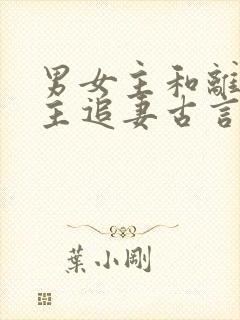 男女主和離
主追妻古言
葉小剛